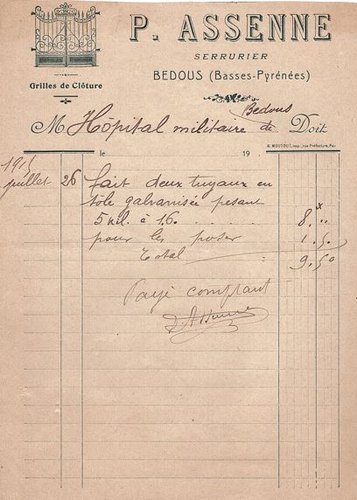 P. ASSENNE
SERRURIER
BEDOUS (Basses-Pyrénées)
Grilles de Clôture
Bedous
M Hôpital militaire de Doit
le 19
191
juillet 26 fait deux tuyaux en
tôle galvanisée pesant
5 kil. à 1.6 8 "
pour les poser 1.50
Total 9.50
Payé comptant
P. Assenne